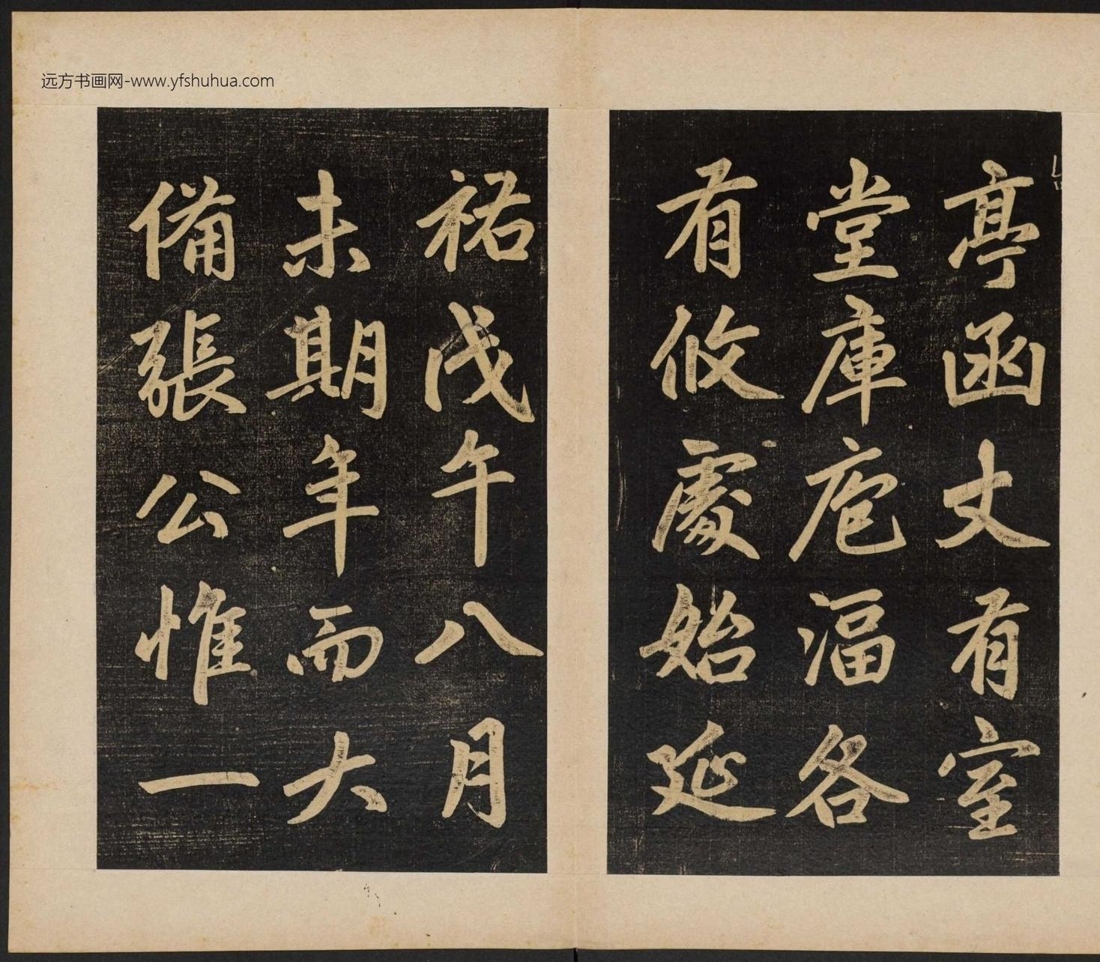 远方书画网-www.yfshuhua.com
亭函丈有室
堂庫庖湢各
有攸處始延
祐戊午八月
未期年而大
備張公惟一